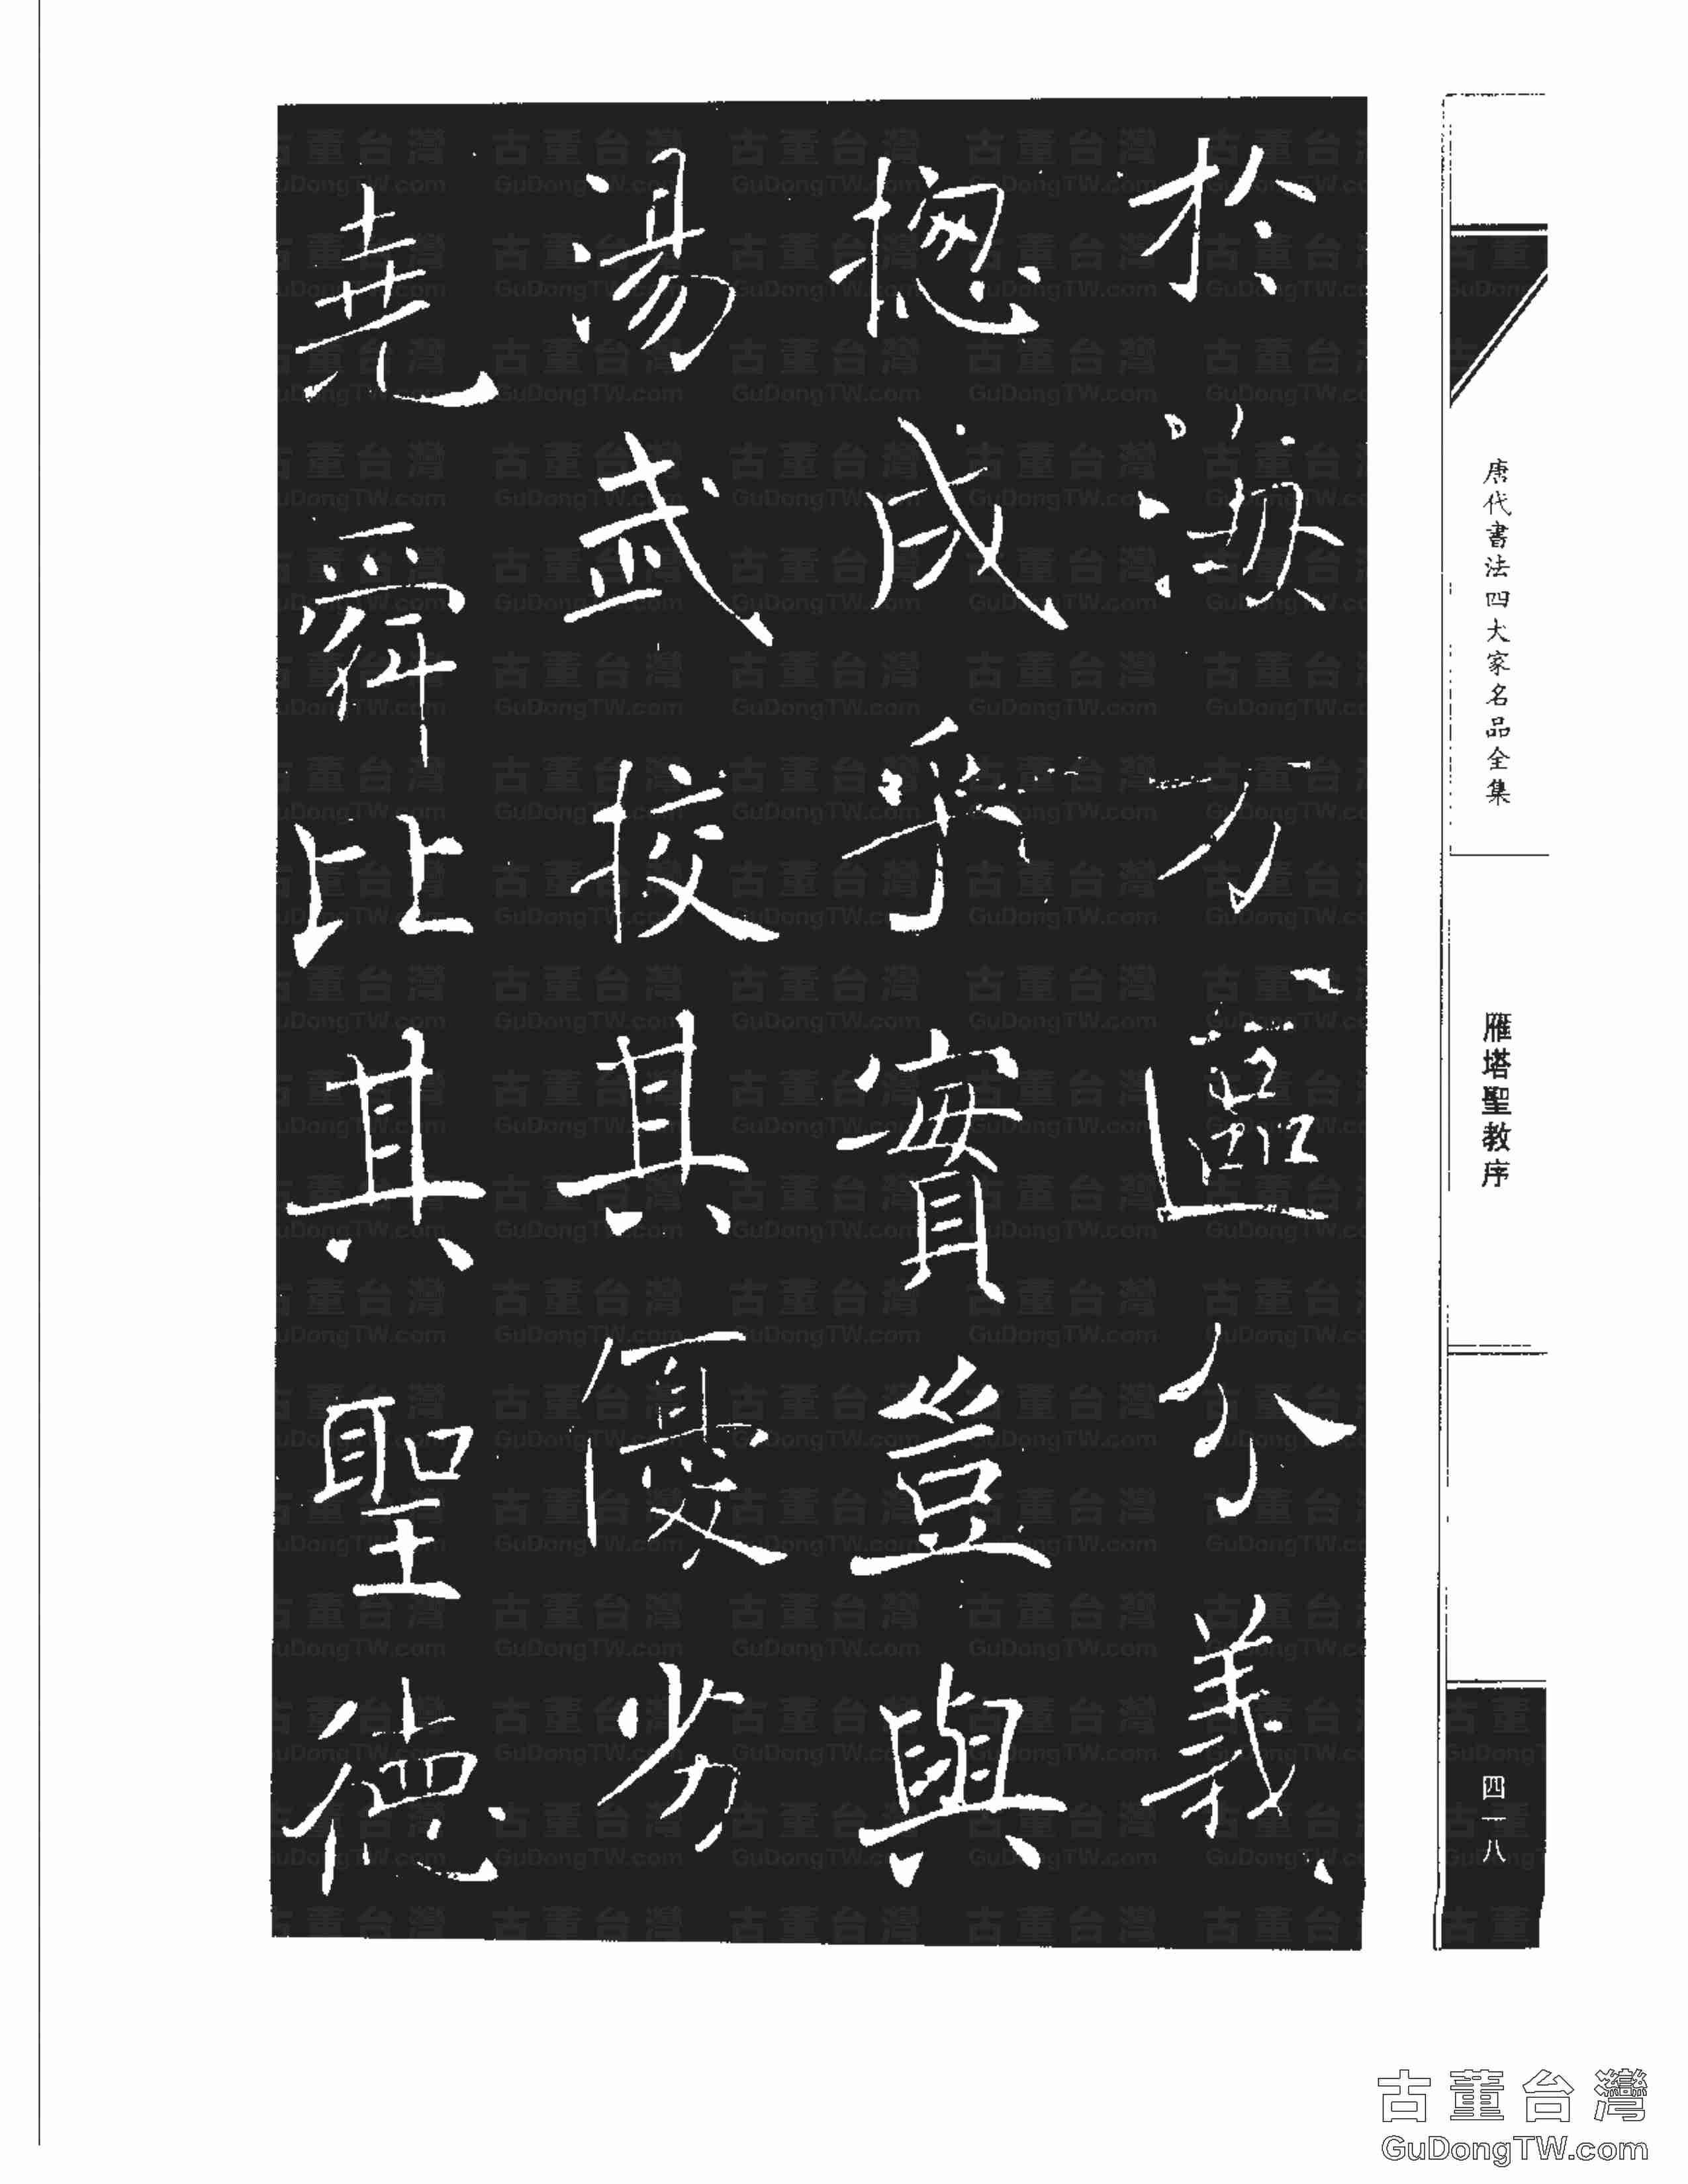 於海方區分義
揔成乎實豈與
湯武校其優劣
堯舜比其聖德
唐代書法四大家名品全集
雁塔聖教序
四一八
古董台灣
GuDongTW.com